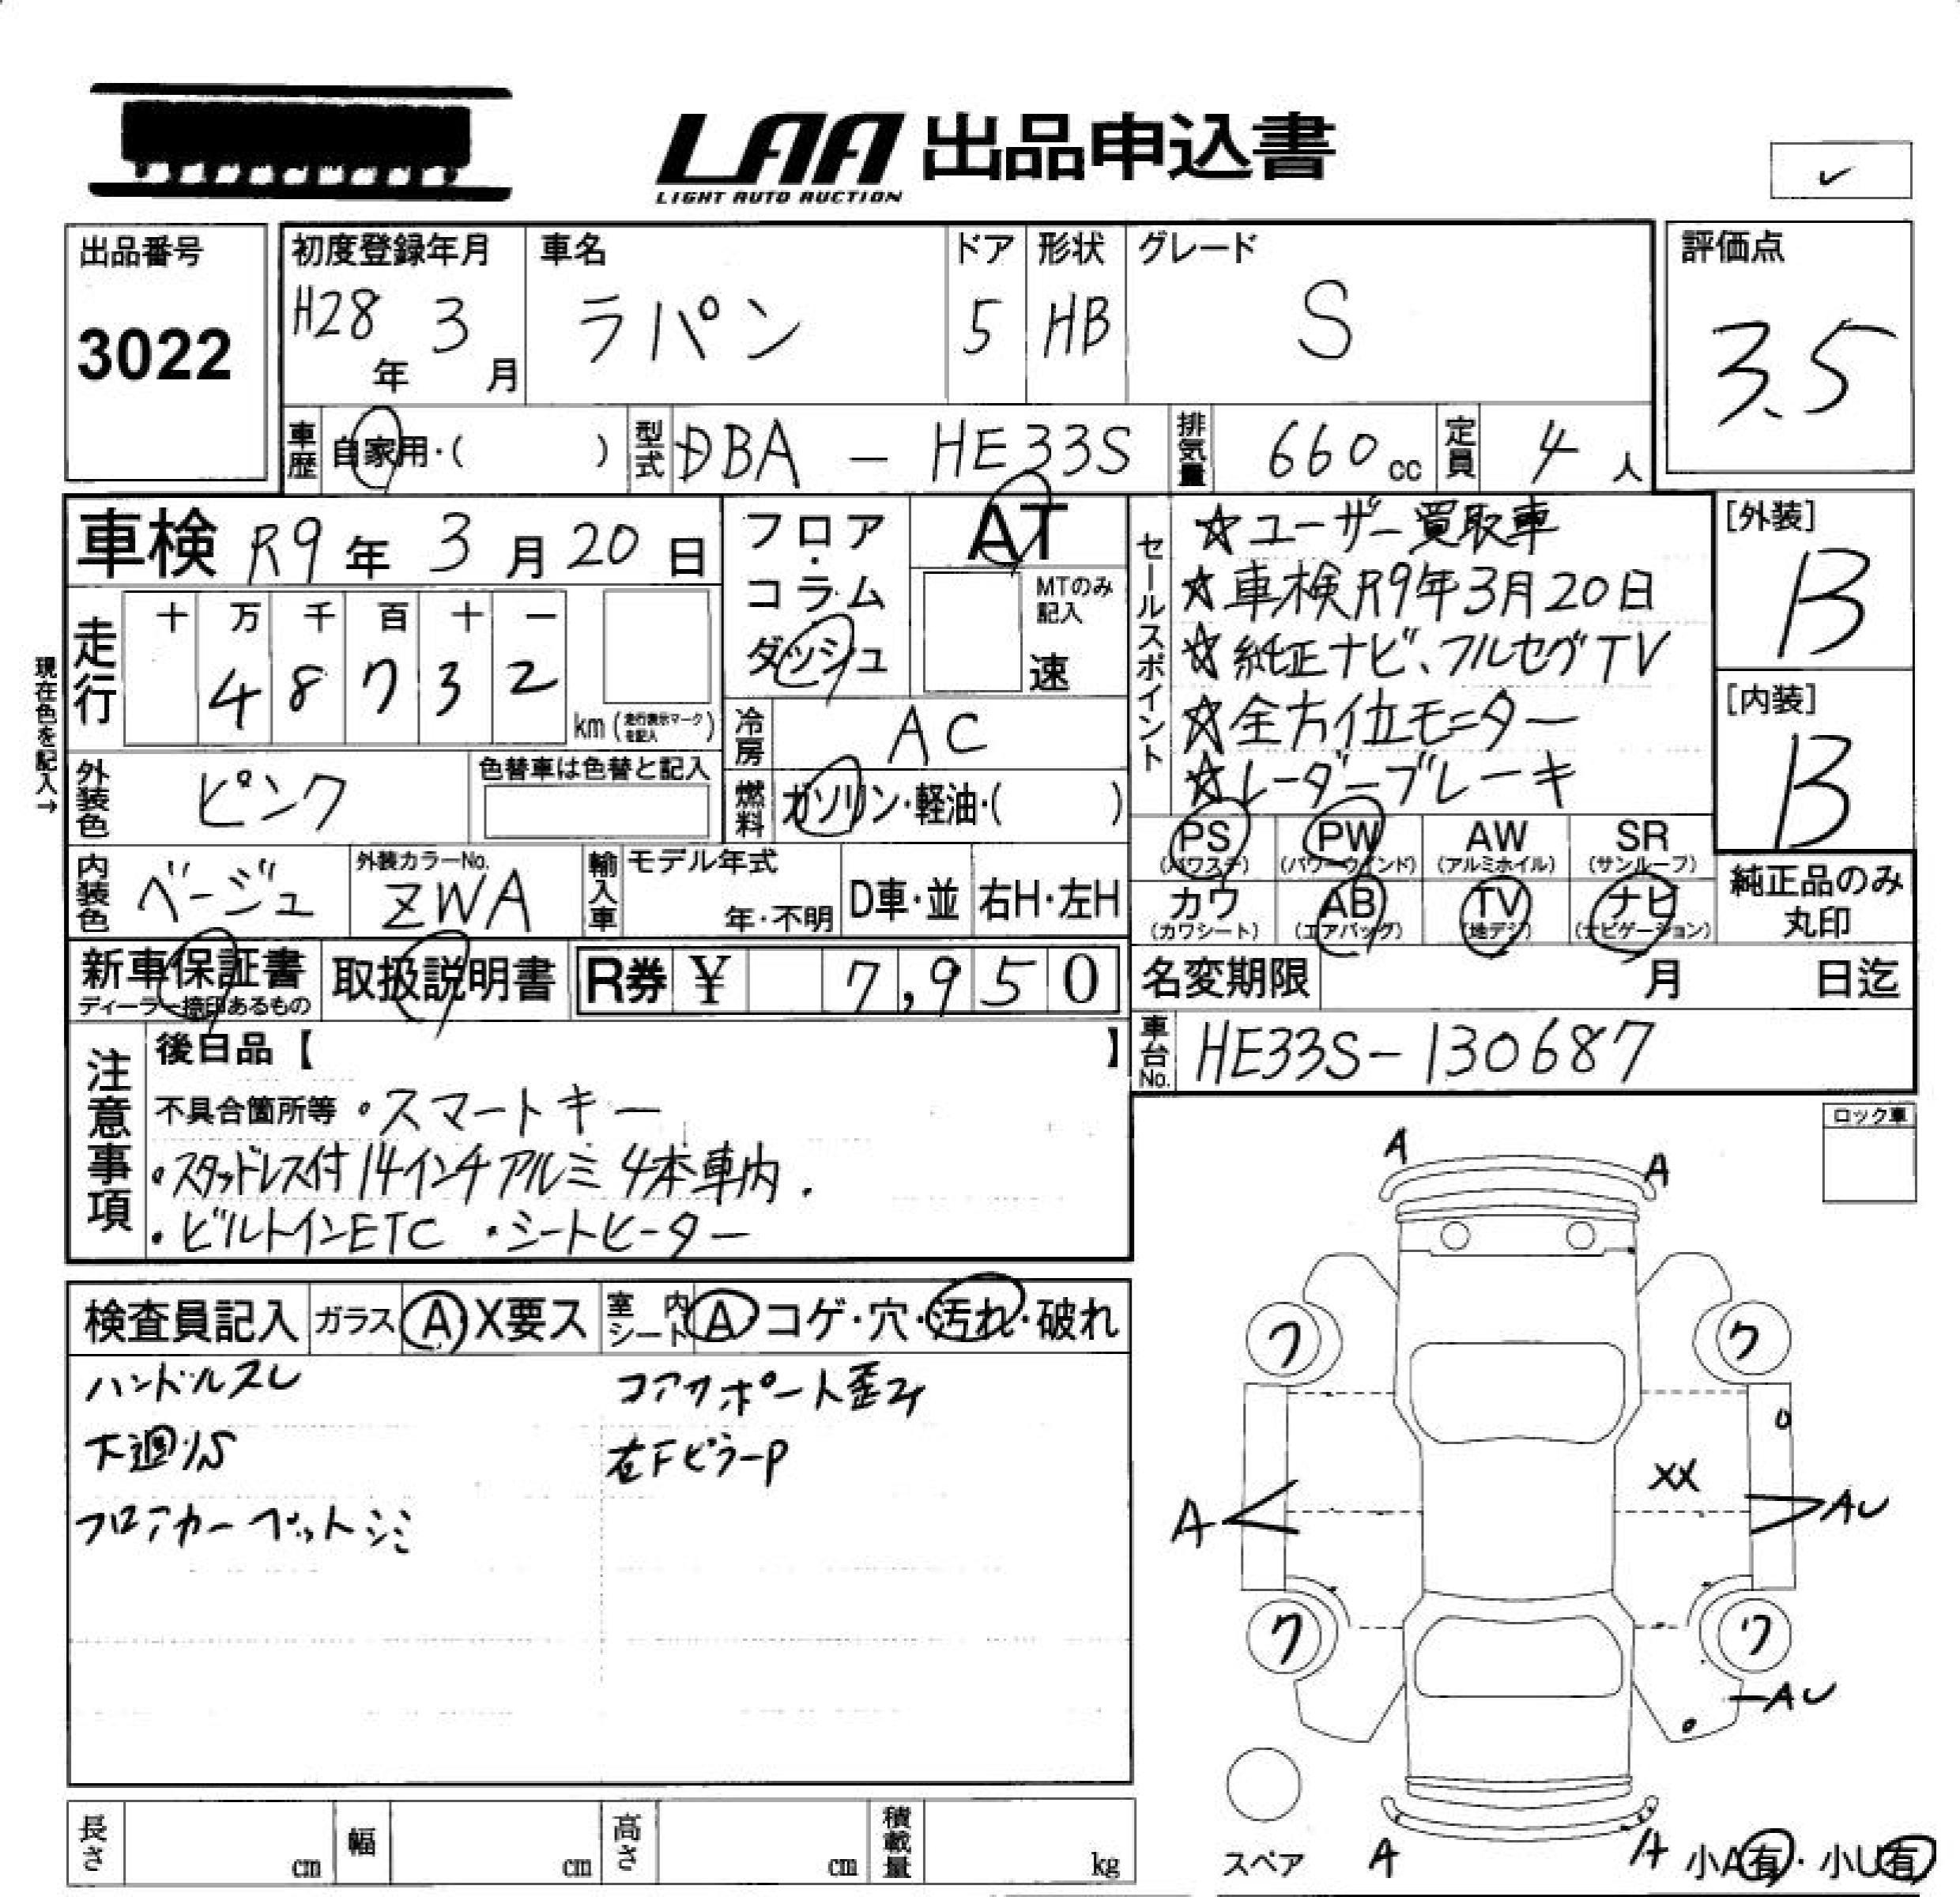 LAA 出品申込書
LIGHT AUTO AUCTION
出品番号
3022
初度登録年月
H28年 3月
車名
ラパン
ドア
5
形状
HB
グレード
S
評価点
3.5
車歴 自家用・( )
型式 DBA - HE33S
排気量 660cc
定員 4人
車検 R9年 3月20日
現在色を記入→
走行
十 万 千 百 十 一
4 8 7 3 2
km (走行表示マークを記入)
フロア・コラム
ダッシュ
AT
MTのみ記入
速
冷房 AC
燃料 ガソリン・軽油・( )
外装色 ピンク
色替車は色替と記入
内装色 ベージュ
外装カラーNo.
ZWA
輸入車
モデル年式
年・不明
D車・並
右H・左H
新車保証書
取扱説明書
R券 ¥ 7,950
セールスポイント
☆ユーザー買取車
☆車検R9年3月20日
☆純正ナビ、フルセグTV
☆全方位モニター
☆レーダーブレーキ
[外装]
B
[内装]
B
PS (パワステ)
PW (パワーウインド)
AW (アルミホイル)
SR (サンルーフ)
カワ (カワシート)
AB (エアバッグ)
TV (地デジ)
ナビ (ナビゲーション)
純正品のみ
丸印
名変期限 月 日迄
車台No. HE33S-130687
注意事項
後日品【 】
不具合箇所等 ・スマートキー
・スタッドレス付14インチアルミ4本車内.
・ビルトインETC ・シートヒーター
ロック車
検査員記入 ガラス A X要ス 室内シート A コゲ・穴・汚れ・破れ
ハンドルスレ
コアサポート歪み
下廻りS
右FピラーP
フロアカーペットシミ
A
A
ワ
ワ
U
XX
A
AU
ワ
ワ
AU
スペア
A
A
小A有・小U有
長さ cm
幅 cm
高さ cm
積載量 kg